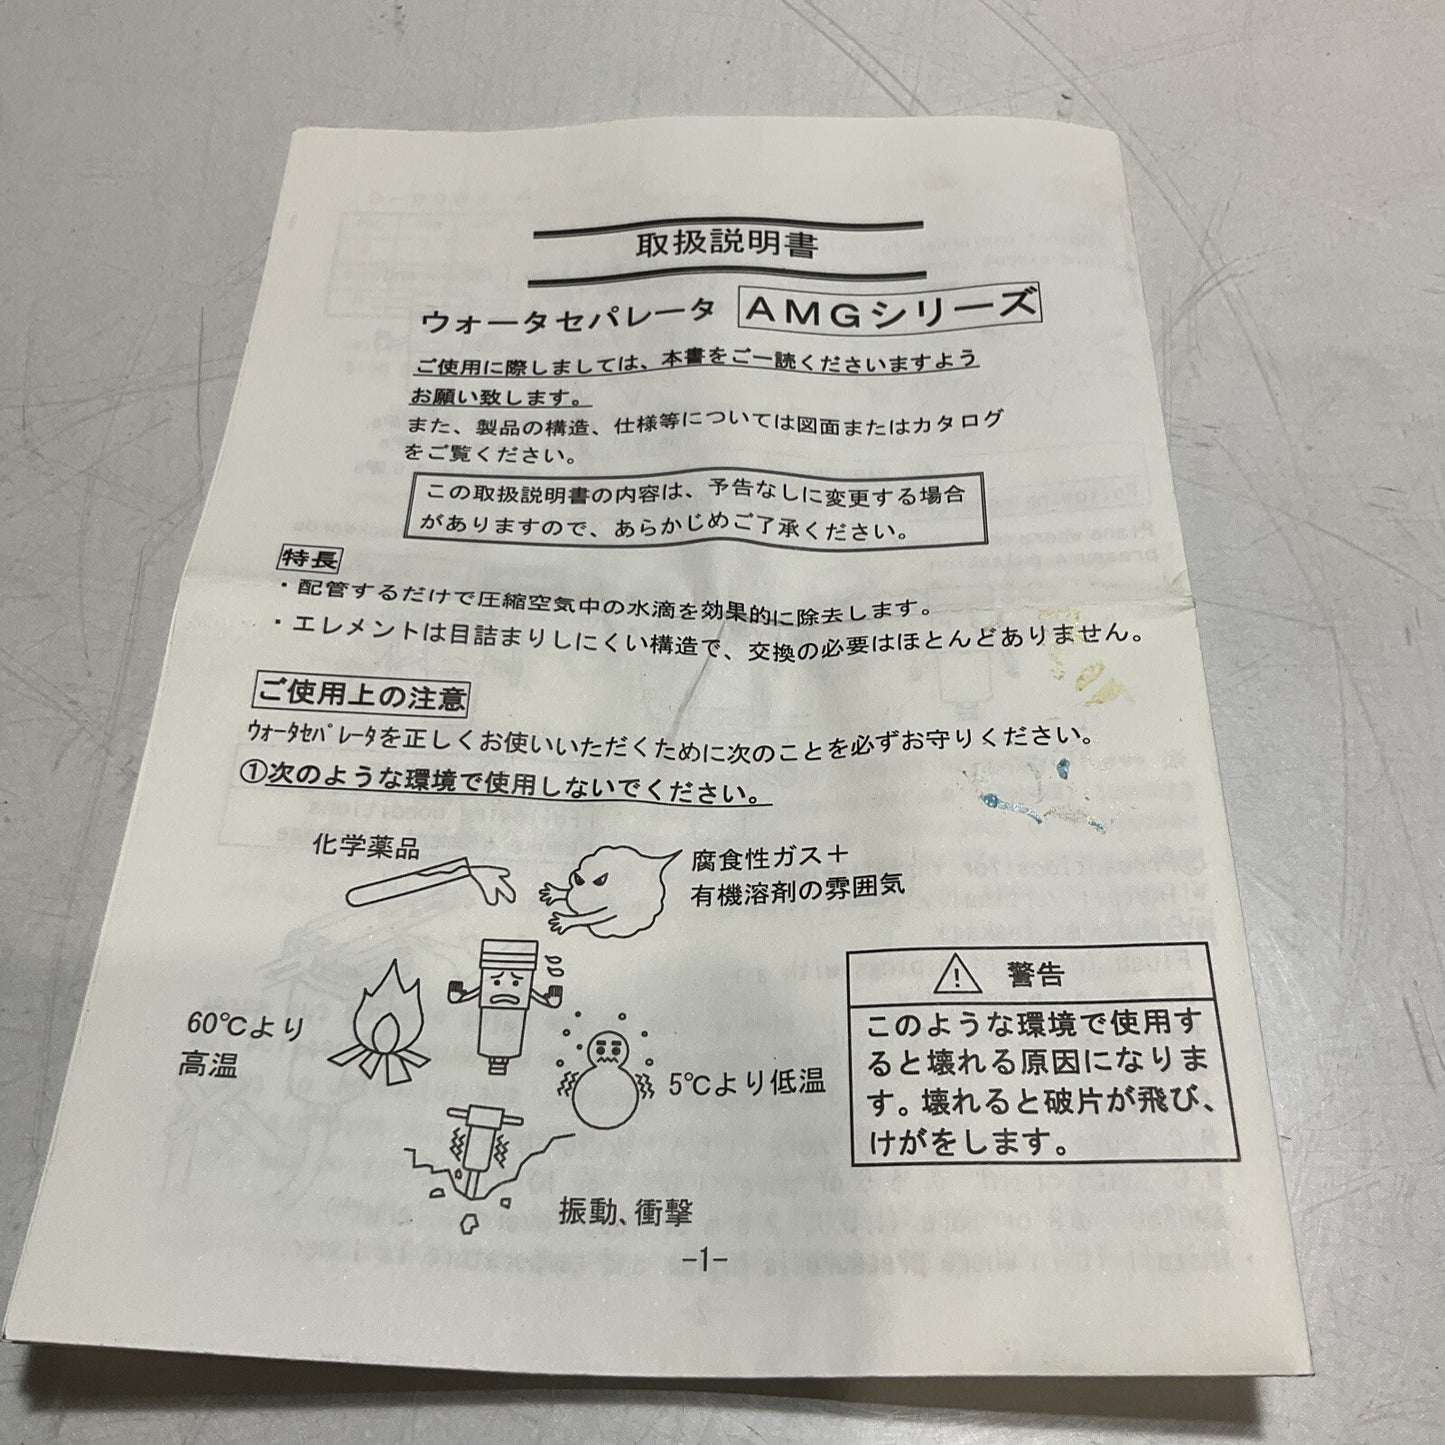 取扱説明書
ウォータセパレータ AMGシリーズ
ご使用に際しましては、本書をご一読くださいますよう
お願い致します。
また、製品の構造、仕様等については図面またはカタログ
をご覧ください。
この取扱説明書の内容は、予告なしに変更する場合
がありますので、あらかじめご了承ください。
特長
・配管するだけで圧縮空気中の水滴を効果的に除去します。
・エレメントは目詰まりしにくい構造で、交換の必要はほとんどありません。
ご使用上の注意
ｳｫｰﾀｾﾊﾟﾚｰﾀを正しくお使いいただくために次のことを必ずお守りください。
①次のような環境で使用しないでください。
化学薬品
腐食性ガス＋
有機溶剤の雰囲気
60℃より
高温
5℃より低温
振動、衝撃
警告
このような環境で使用す
ると壊れる原因になりま
す。壊れると破片が飛び、
けがをします。
-1-